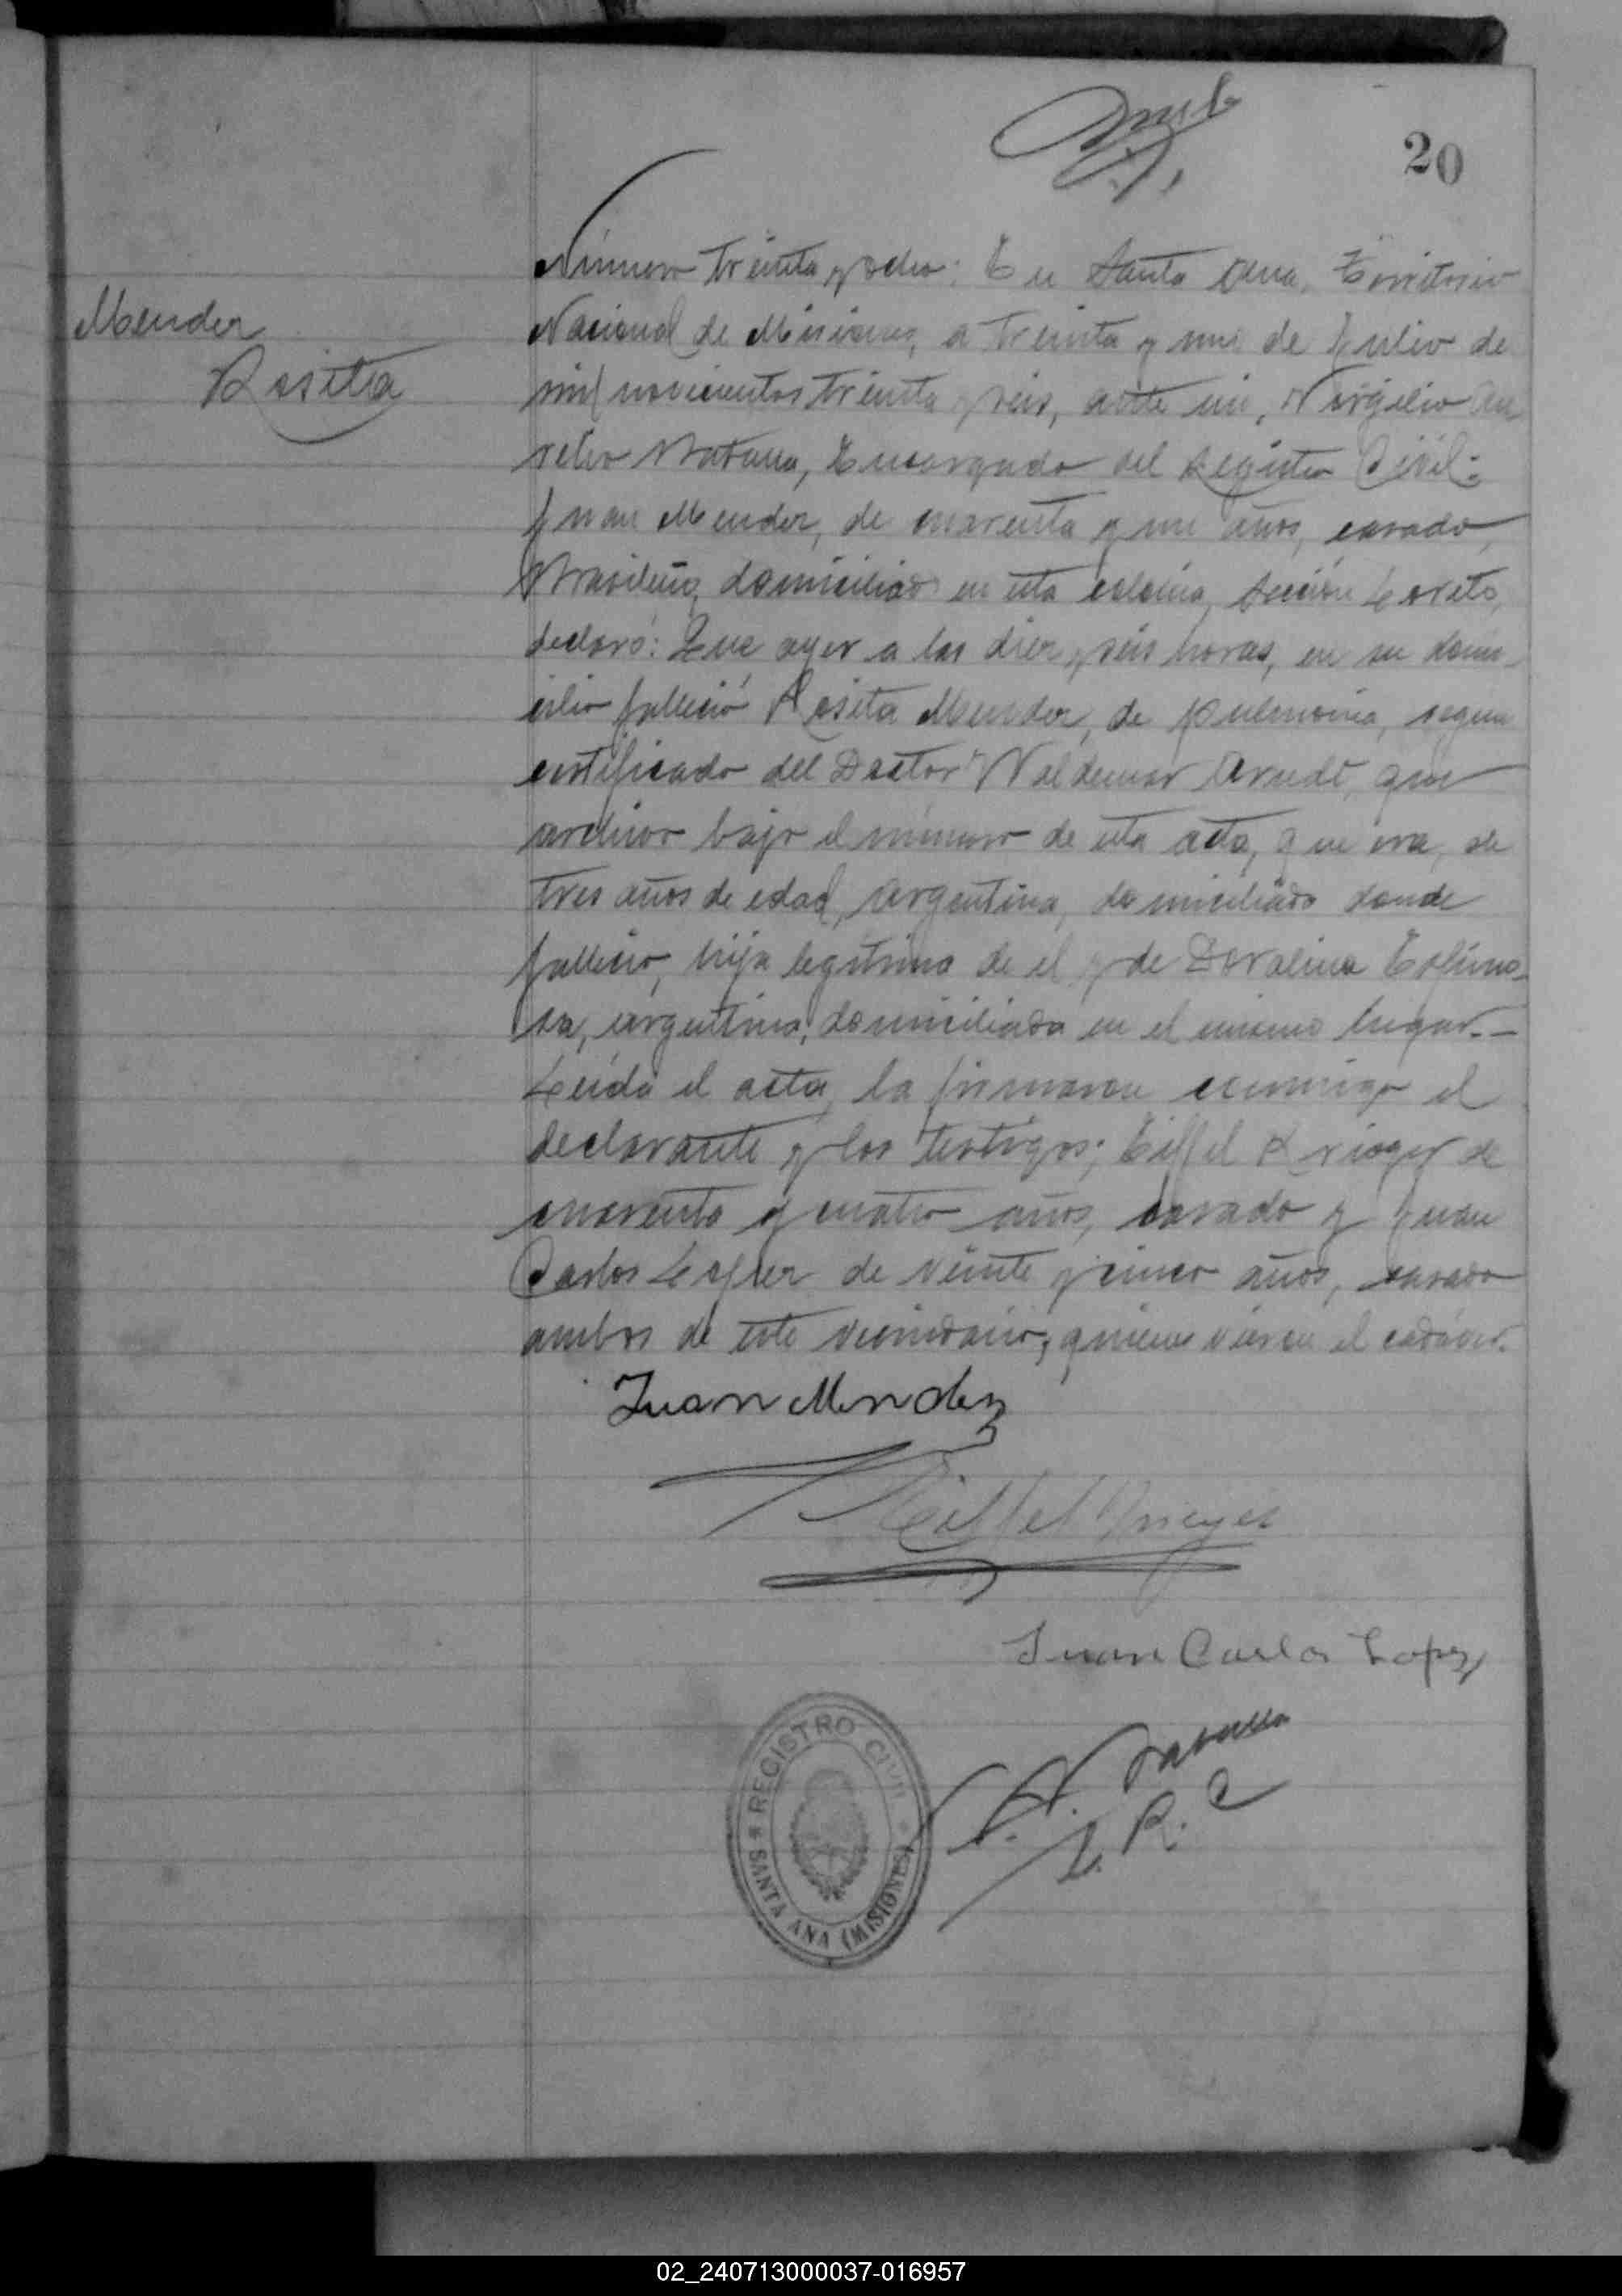 20
Número treinta y ocho: En Santa Ana, Territorio
Mendez
Rosita
Nacional de Misiones, a treinta y uno de Julio de
mil novecientos treinta y seis, ante mi, Virgilio Au
relio Batana, Encargado del Registro Civil:
Juan Mendez, de cuarenta y un años, casado,
Brasileño, domiciliado en esta colonia, Sección Loreto,
declaró: Que ayer a las diez y seis horas, en su domi-
cilio falleció Rosita Mendez, de pulmonia, segun
certificado del Doctor Waldemar Arndt, que
archivo bajo el número de esta acta, que era, de
tres años de edad, argentina, domiciliada donde
falleció, hija legítima de el y de Doralina
argentina, domiciliada en el mismo lugar.-
Leida el acta, la firmaron conmigo el
declarante y los testigos; Eiffel Krieger de
cuarenta y cuatro años, casado y Juan
Carlos Lopez de veinte y cinco años, casado
ambos de este vecindario, quienes vieron el cadáver.
Juan Mendez
Eiffel
Juan Carlos Lopez
REGISTRO CIVIL
SANTA ANA (MISIONES)
E. R. C
02_240713000037-016957